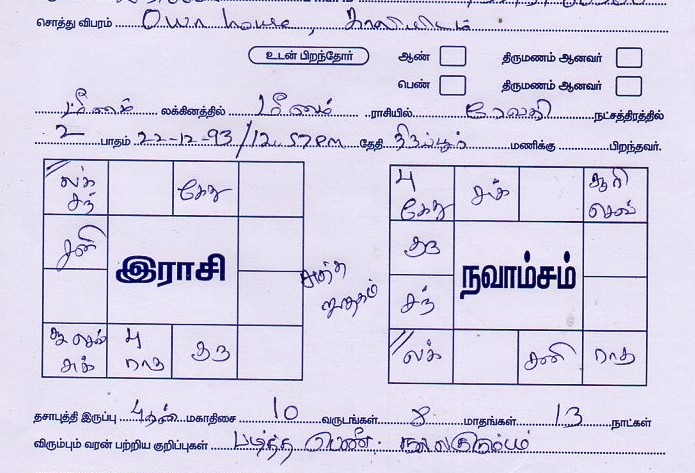 சொத்து விபரம் Own house, காலியிடம்
உடன் பிறந்தோர் ஆண் திருமணம் ஆனவர்
பெண் திருமணம் ஆனவர்
மீனம் லக்கினத்தில் மீனம் ராசியில் ரேவதி நட்சத்திரத்தில்
2 பாதம் 22-12-93/12.57PM தேதி திருப்பூர் மணிக்கு பிறந்தவர்.
லக் சந் கேது
சனி
இராசி
சூ செவ் சுக் பு ராகு குரு
சுத்த ஜாதகம்
பு கேது சுக் சூரி செவ்
குரு
நவாம்சம்
சந்
லக் சனி ராகு
தசாபுத்தி இருப்பு புதன் மகாதிசை 10 வருடங்கள் 8 மாதங்கள் 13 நாட்கள்
விரும்பும் வரன் பற்றிய குறிப்புகள் படித்த பெண். நல்லகுடும்பம்